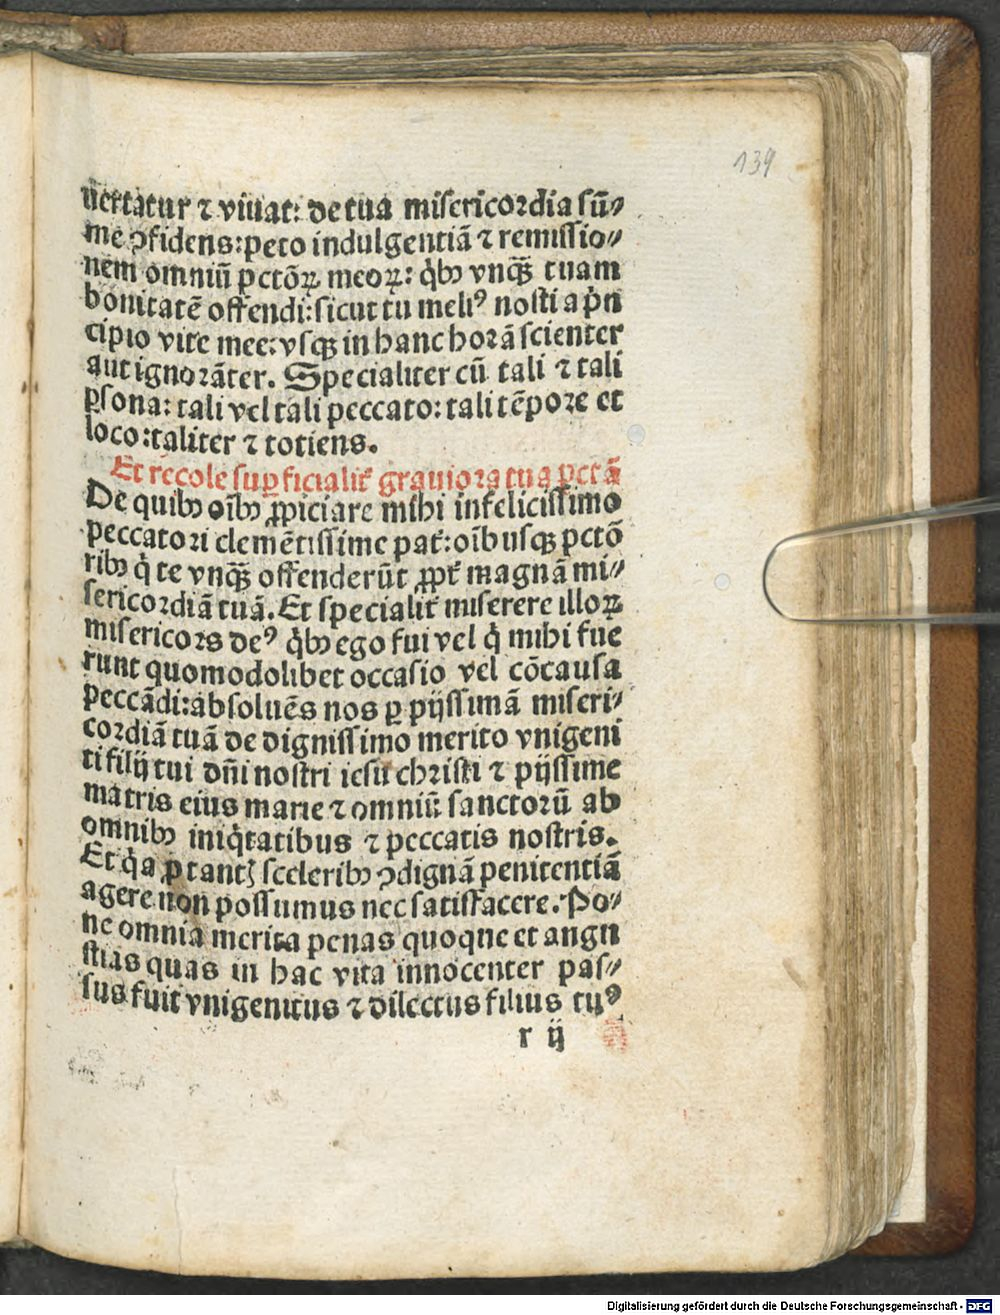 139
uertatur ⁊ viuat: de tua misericordia sū⸗
me ꝯfidens: peto indulgentiā ⁊ remissio⸗
nem omniū pctōꝝ meoꝝ: q̇bꝫ vnqꝫ̄ tuam
bonitatē offendi: sicut tu meliꝰ nosti a pṅ
cipio vite mee: vsqꝫ in hanc horā scienter
aut ignorāter. Specialiter cū tali ⁊ tali
ꝑsona: tali vel tali peccato: tali tēpore et
loco: taliter ⁊ totiens.
Et recole suꝑficialit̃ grauiora tua pctā
De quibꝫ oībꝫ ꝓpiciare mihi infelicissimo
peccatori clemētissime pat̃: oībusqꝫ pctō
ribꝫ q̇ te vnqꝫ̄ offenderūt ꝓpt̃ magnā mi⸗
sericordiā tuā. Et specialit̃ miserere illoꝝ
misericors deꝰ q̇bꝫ ego fui vel q̇ mihi fue
runt quomodolibet occasio vel cōcausa
peccādi: absoluēs nos ꝑ pijssimā miseri⸗
cordiā tuā de dignissimo merito vnigeni
ti filij tui dn̄i nostri iesu christi ⁊ pijssime
matris eius marie ⁊ omniū sanctorū ab
omnibꝫ iniq̇tatibus ⁊ peccatis nostris.
Et q̇a ꝓ tantꝭ sceleribꝫ ꝯdignā penitentiā
agere non possumus nec satisfacere. Po⸗
ne omnia merita penas quoqne et angu
stias quas in hac vita innocenter pas⸗
sus fuit vnigenitus ⁊ dilectus filius tuꝰ
r ij
Digitalisierung gefördert durch die Deutsche Forschungsgemeinschaft - DFG